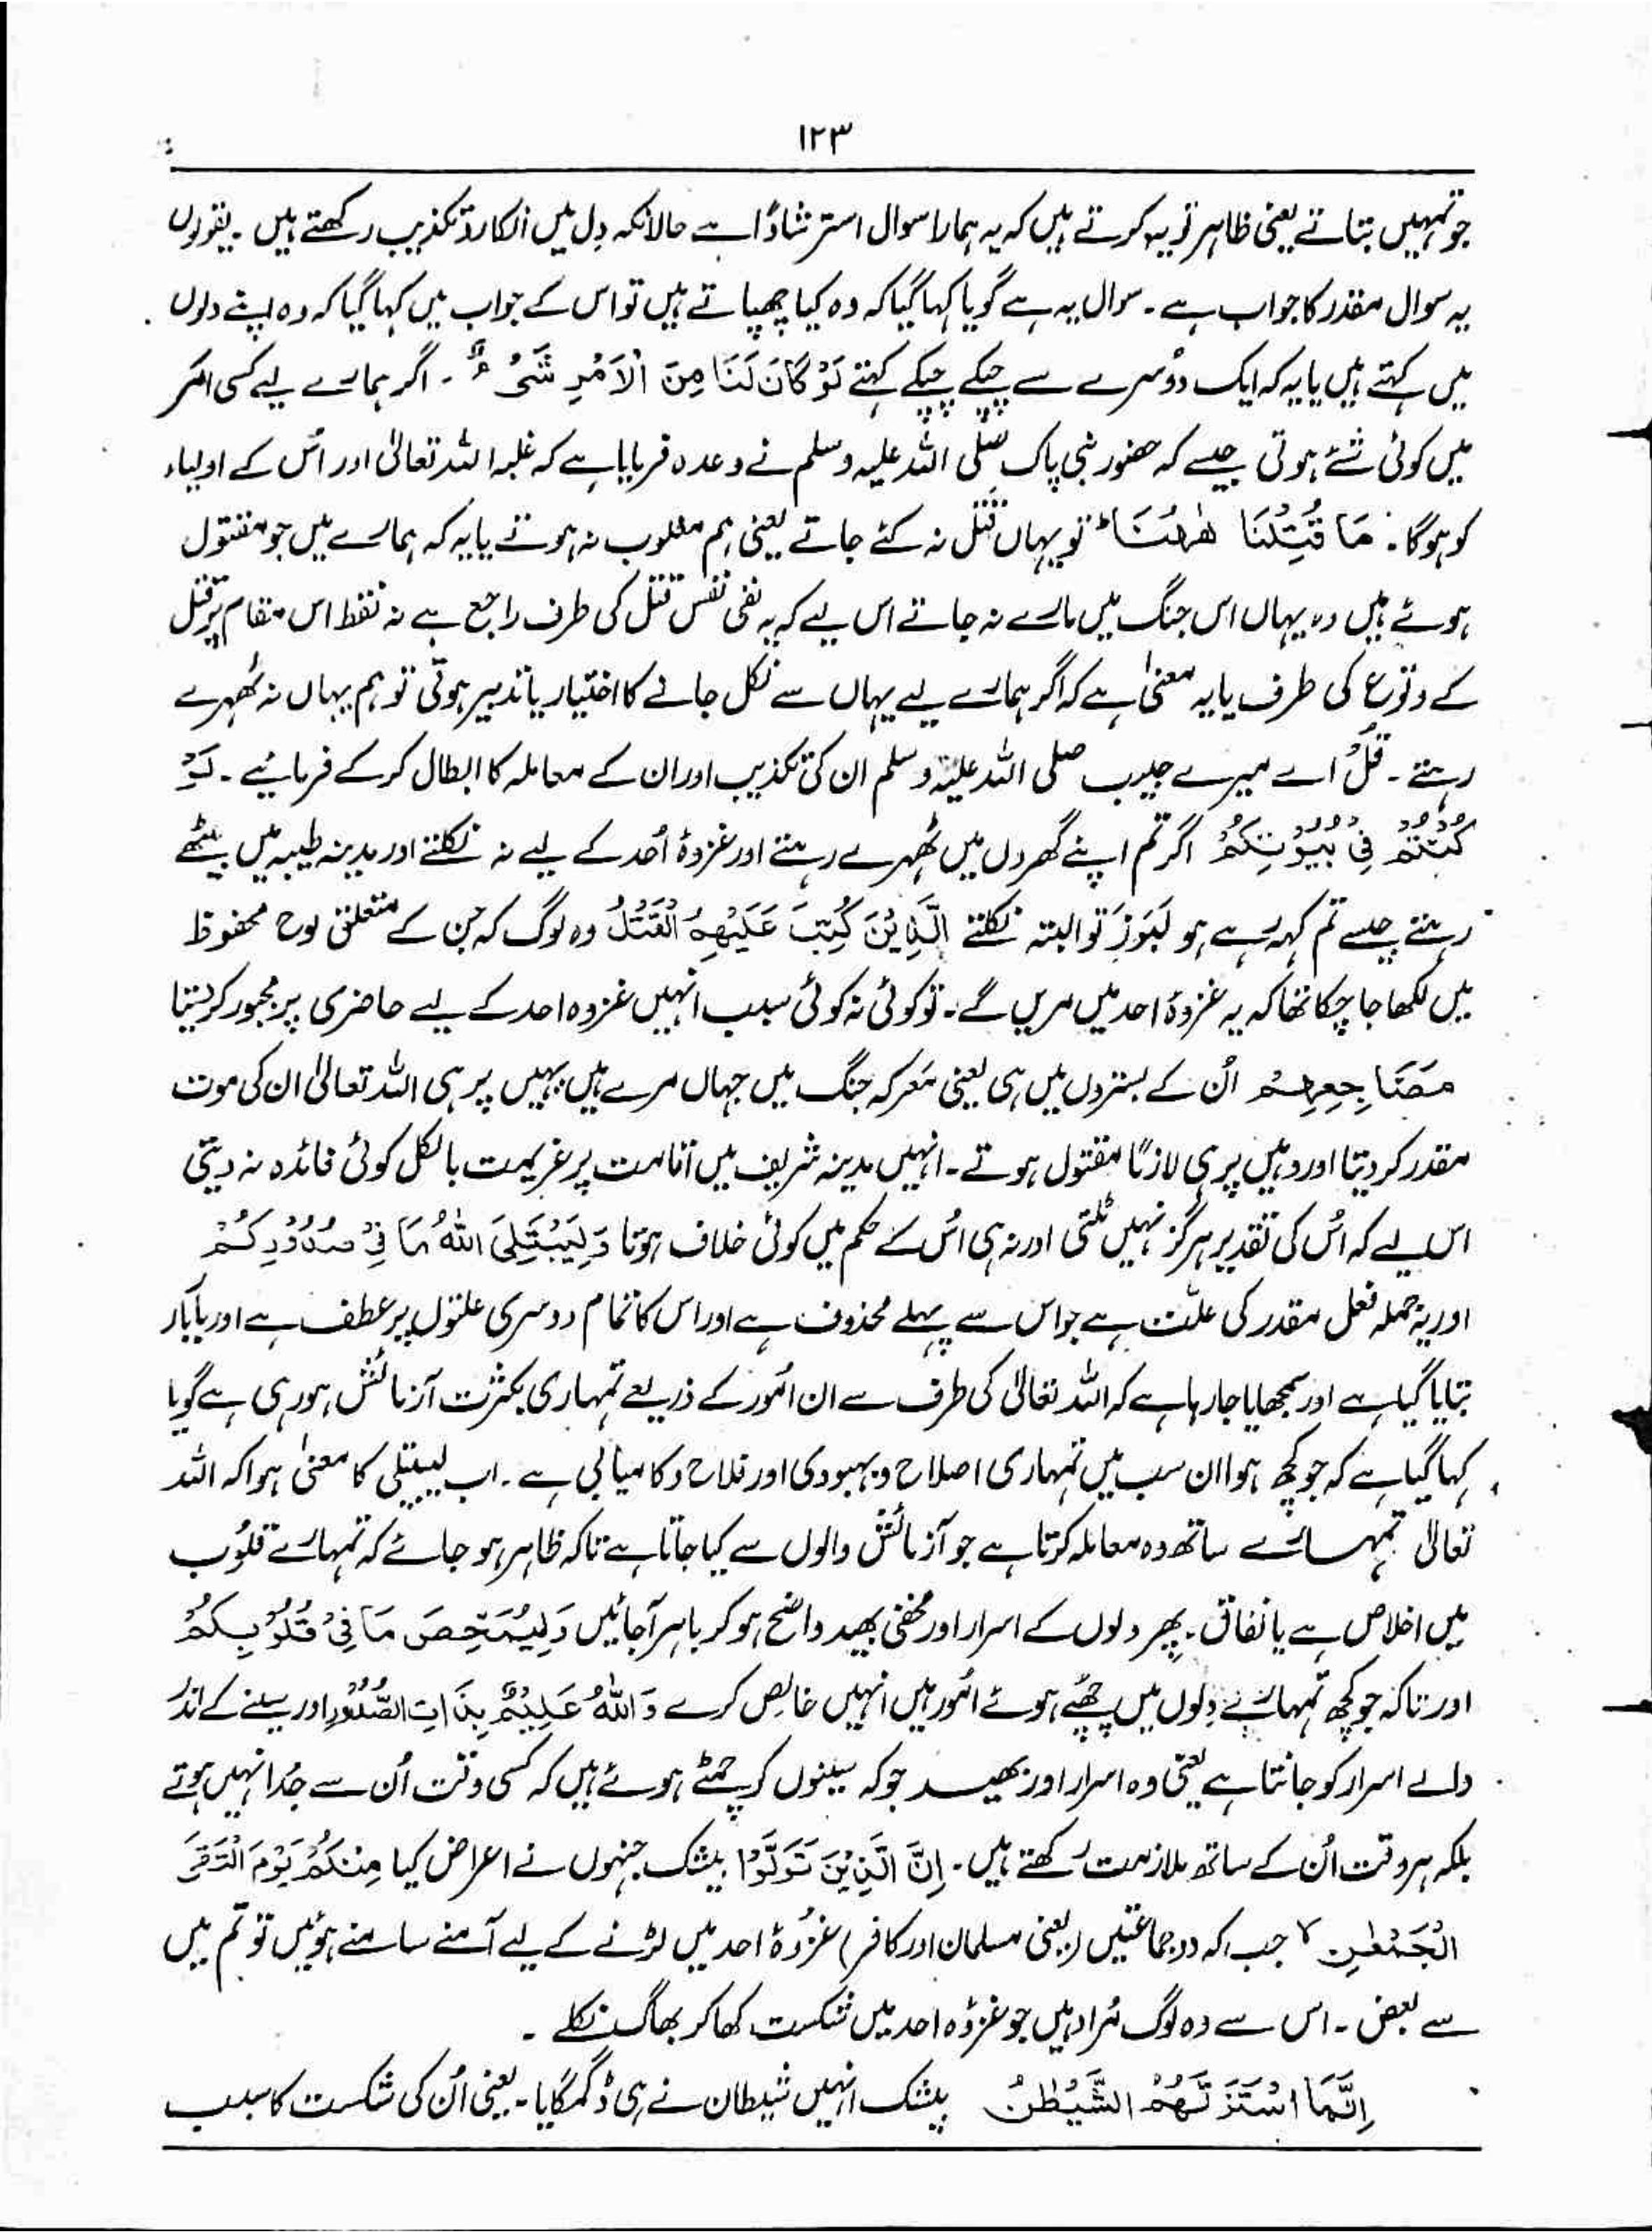 ۱۲۳
جو تمہیں بتاتے یعنی ظاہر تو یہ کرتے ہیں کہ یہ ہمارا سوال استرشاداً ہے حالانکہ دل میں انکار و تکذیب رکھتے ہیں ۔ یقولون
یہ سوال مقدر کا جواب ہے ۔ سوال یہ ہے گویا کہا گیا کہ وہ کیا چھپاتے ہیں تو اس کے جواب میں کہا گیا کہ وہ اپنے دلوں
میں کہتے ہیں یا یہ کہ ایک دوسرے سے چپکے چپکے کہتے لَوْ كَانَ لَنَا مِنَ الْاَمْرِ شَیْءٌ ۔ اگر ہمارے لیے کسی امر
میں کوئی شئے ہوتی جیسے کہ حضور نبی پاک صلی اللہ علیہ وسلم نے وعدہ فرمایا ہے کہ غلبہ اللہ تعالیٰ اور اُس کے اولیاء
کو ہوگا ۔ مَا قُتِلْنَا هٰهُنَا ؕ تو یہاں قتل نہ کئے جاتے یعنی ہم مغلوب نہ ہوتے یا یہ کہ ہمارے میں جو مقتول
ہوئے ہیں وہ یہاں اس جنگ میں مارے نہ جاتے اس لیے کہ یہ نفی نفس قتل کی طرف راجع ہے نہ فقط اس مقام پر قتل
کے وقوع کی طرف یا یہ معنیٰ ہے کہ اگر ہمارے لیے یہاں سے نکل جانے کا اختیار یا تدبیر ہوتی تو ہم یہاں نہ ٹھہرے
رہتے ۔ قُلْ اے میرے حبیب صلی اللہ علیہ وسلم ان کی تکذیب اور ان کے معاملہ کا ابطال کر کے فرمائیے ۔ لَوْ
كُنْتُمْ فِیْ بُیُوْتِكُمْ اگر تم اپنے گھروں میں ٹھہرے رہتے اور غزوۂ اُحد کے لیے نہ نکلتے اور مدینہ طیبہ میں بیٹھے
رہتے جیسے تم کہہ رہے ہو لَبَرَزَ تو البتہ نکلتے الَّذِیْنَ كُتِبَ عَلَیْهِمُ الْقَتْلُ وہ لوگ کہ جن کے متعلق لوح محفوظ
میں لکھا جا چکا تھا کہ یہ غزوۂ احد میں مریں گے ۔ تو کوئی نہ کوئی سبب انہیں غزوہ احد کے لیے حاضری پر مجبور کر دیتا
مَضَاجِعِهِمْ اُن کے بستروں میں ہی یعنی معرکہ جنگ میں جہاں مرے ہیں یہیں پر ہی اللہ تعالیٰ ان کی موت
مقدر کر دیتا اور وہیں پر ہی لازماً مقتول ہوتے ۔ انہیں مدینہ شریف میں اقامت پر عزیمت بالکل کوئی فائدہ نہ دیتی
اس لیے کہ اُس کی تقدیر ہرگز نہیں ٹلتی اور نہ ہی اُس کے حکم میں کوئی خلاف ہوتا وَلِیَبْتَلِیَ اللّٰهُ مَا فِیْ صُدُوْرِكُمْ
اور یہ جملہ فعل مقدر کی علّت ہے جو اس سے پہلے محذوف ہے اور اس کا تمام دوسری علتوں پر عطف ہے اور بابار
بتایا گیا ہے اور سمجھایا جا رہا ہے کہ اللہ تعالیٰ کی طرف سے ان امُور کے ذریعے تمہاری بکثرت آزمائش ہو رہی ہے گویا
کہا گیا ہے کہ جو کچھ ہوا ان سب میں تمہاری اصلاح و بہبودی اور فلاح و کامیابی ہے ۔ اب لیبتلی کا معنیٰ ہوا کہ اللہ
تعالیٰ تمہارے ساتھ وہ معاملہ کرتا ہے جو آزمائش والوں سے کیا جاتا ہے تاکہ ظاہر ہو جائے کہ تمہارے قلوُب
میں اخلاص ہے یا نفاق ۔ پھر دلوں کے اسرار اور مخفی بھید واضح ہو کر باہر آجائیں وَلِیُمَحِّصَ مَا فِیْ قُلُوْبِكُمْ
اور تاکہ جو کچھ تمہارے دِلوں میں چھپے ہوئے امُور ہیں انہیں خالِص کرے وَاللّٰهُ عَلِیْمٌۢ بِذَاتِ الصُّدُوْرِ اور سینے کے اندر
والے اسرار کو جانتا ہے یعنی وہ اسرار اور بھید جو کہ سینوں کر چمٹے ہوئے ہیں کہ کسی وقت اُن سے جُدا نہیں ہوتے
بلکہ ہر وقت اُن کے ساتھ ملازمت رکھتے ہیں ۔ اِنَّ الَّذِیْنَ تَوَلَّوْا بیشک جنہوں نے اعراض کیا مِنْكُمْ یَوْمَ الْتَقَى
الْجَمْعٰنِ ۙ جب کہ دو جماعتیں (یعنی مسلمان اور کافر) غزوۂ احد میں لڑنے کے لیے آمنے سامنے ہوئیں تو تم میں
سے بعض ۔ اس سے وہ لوگ مُراد ہیں جو غزوۂ احد میں شکست کھا کر بھاگ نکلے ۔
اِنَّمَا اسْتَزَلَّهُمُ الشَّیْطٰنُ بیشک انہیں شیطان نے ہی ڈگمگایا ۔ یعنی اُن کی شکست کا سبب